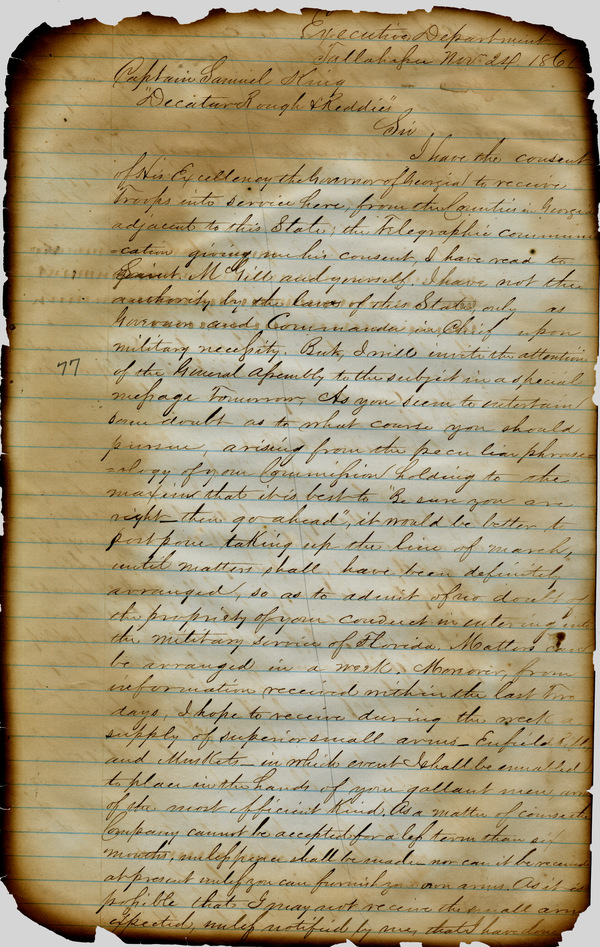 Executive Department
Tallahassee Nov 24 186
Captain Samuel King
"Decatur Rough & Reddies"
Sir
I have the consent
of His Excellency the Governor of Georgia to receive
Troops into service here, from the Counties in Georgia
adjacent to this State; the Telegraphic communi
=cation giving me his consent, I have read to
Lieut. McGill and yourself. I have not the
authority by the laws of this State, only as
Governor and Commander in Chief upon
military necessity. But, I will invite the attention
77
of the General Assembly to the subject in a special
message Tomorrow. As you seem to entertain
some doubt as to what course you should
pursue, arising from the peculiar phrase=
=ology of your Commission, holding to the
maxim that it is best to "Be sure you are
right – then go ahead", it would be better to
postpone taking up the line of march,
until matters shall have been definitely
arranged, so as to admit of no doubt of
the propriety of your conduct in entering into
the military service of Florida. Matters can
be arranged in a week. Moreover, from
information received within the last Two
days, I hope to receive during the week a
supply of superior small arms – Enfield
and Muskets – in which event I shall be enabled
to place in the hands of your gallant men, arms
of the most efficient Kind. As a matter of course the
Company cannot be accepted for a less term than six
months, unless peace shall be made nor can it be received
at present unless you can furnish your own arms. As it is
possible that I may not receive the small arms
expected, unless notified by me, that I have done